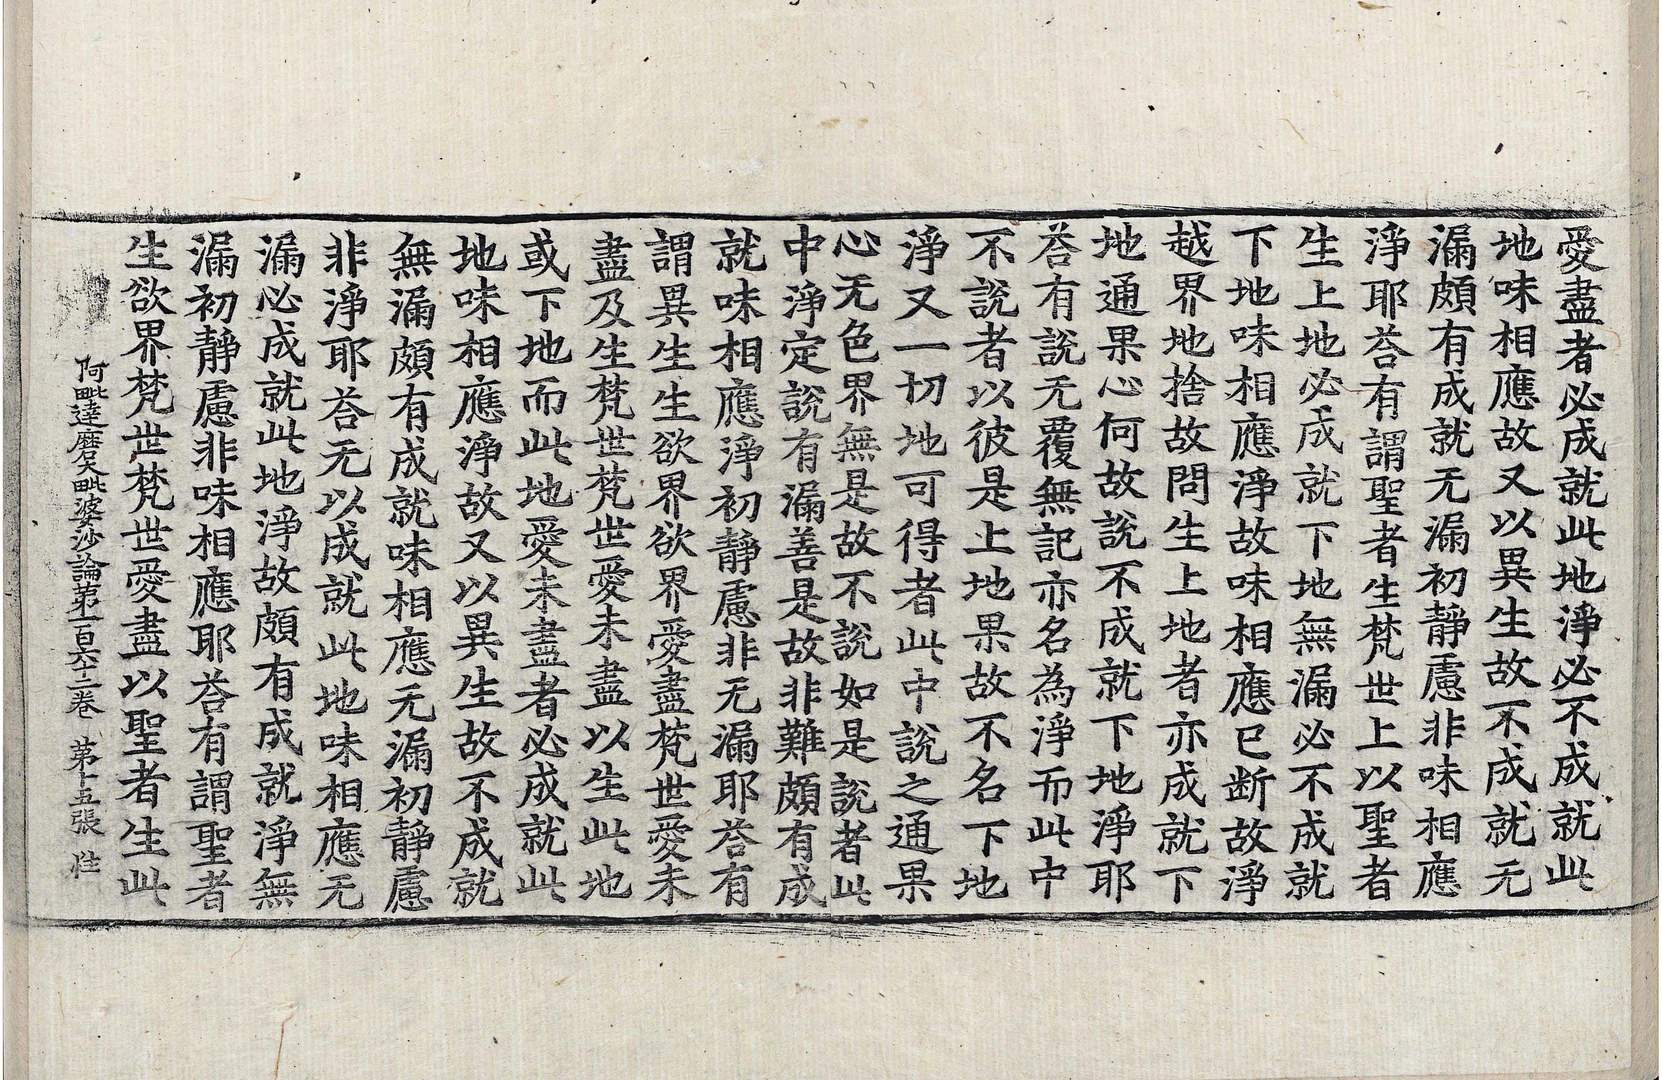 愛盡者必成就此地淨必不成就此
地味相應故又以異生故不成就无
漏頗有成就无漏初靜慮非味相應
淨耶荅有謂聖者生梵世上以聖者
生上地必成就下地無漏必不成就
下地味相應淨故味相應已断故淨
越界地捨故問生上地者亦成就下
地通果心何故說不成就下地淨耶
荅有說无覆無記亦名為淨而此中
不說者以彼是上地果故不名下地
淨又一切地可得者此中說之通果
心无色界無是故不說如是說者此
中淨定說有漏善是故非難頗有成
就味相應淨初靜慮非无漏耶荅有
謂異生生欲界欲界愛盡梵世愛未
盡及生梵世梵世愛未盡以生此地
或下地而此地愛未盡者必成就此
地味相應淨故又以異生故不成就
無漏頗有成就味相應无漏初靜慮
非淨耶荅无以成就此地味相應无
漏必成就此地淨故頗有成就淨無
漏初靜慮非味相應耶荅有謂聖者
生欲界梵世梵世愛盡以聖者生此
阿毗達磨大毗婆沙論第一百六十二卷 第十五張 性